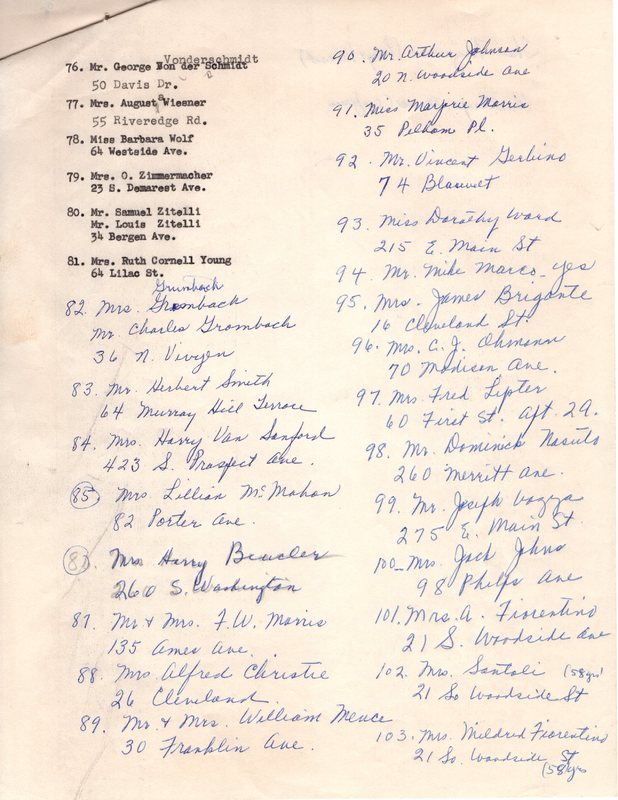 Vonderschmidt
76. Mr. George Von der Schmidt
50 Davis Dr.
77. Mrs. Augusta Wiesner
55 Riveredge Rd.
78. Miss Barbara Wolf
64 Westside Ave.
79. Mrs. O. Zimmermacher
23 S. Demarest Ave.
80. Mr. Samuel Zitelli
Mr. Louis Zitelli
34 Bergen Ave.
81. Mrs. Ruth Cornell Young
64 Lilac St.
Grumbach
82. Mrs. Grombach
Mr. Charles Grombach
36 N. Vivyen
83. Mr. Herbert Smith
64 Murray Hill Terrace
84. Mrs. Harry Van Sanford
423 S. Prospect Ave.
85 Mrs. Lillian McMahon
82 Porter Ave.
Mrs Harry
260 S. Washington
87. Mr. & Mrs. F.W. Morris
135 Ames Ave.
88. Mrs. Alfred Christie
26 Cleveland.
89. Mr. & Mrs. William Meuce
30 Franklin Ave.
90. Mr. Arthur Johnson
20 N. Woodside Ave
91. Miss Marjorie Morris
35 Pelham Pl.
92. Mr. Vincent Gerbino
74 Blauvet
93. Miss Dorothy Ward
215 E. Main St
94. Mr. Mike Marco - yes
95. Mrs. James Brigante
16 Cleveland St.
96. Mrs. C. J. Ohmann
70 Madison Ave.
97. Mrs. Fred Lipter
60 First St. Apt. 29.
98. Mr. Dominick Nasuto
260 Merritt Ave.
99. Mr. Joseph Vozza
275 E. Main St.
100- Mrs. Jack Johns
98 Phelps Ave
101. Mrs. A. Fiorentino
21 S. Woodside Ave
102. Mrs. Santoli (58yrs)
21 So Woodside St
103. Mrs. Mildred Fiorentino
21 So. Woodside St
(58yrs